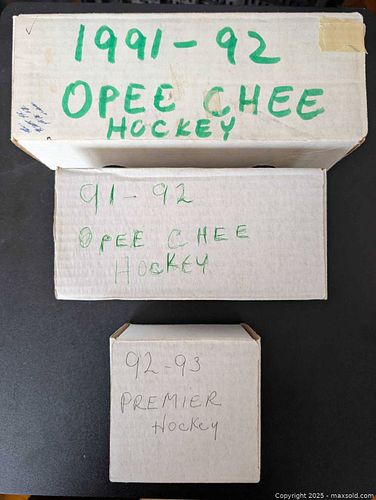 1991-92
OPEE CHEE
HOCKEY
91-92
OPEE CHEE
HOCKEY
92-93
PREMIER
Hockey
Copyright 2025 - maxsold.com